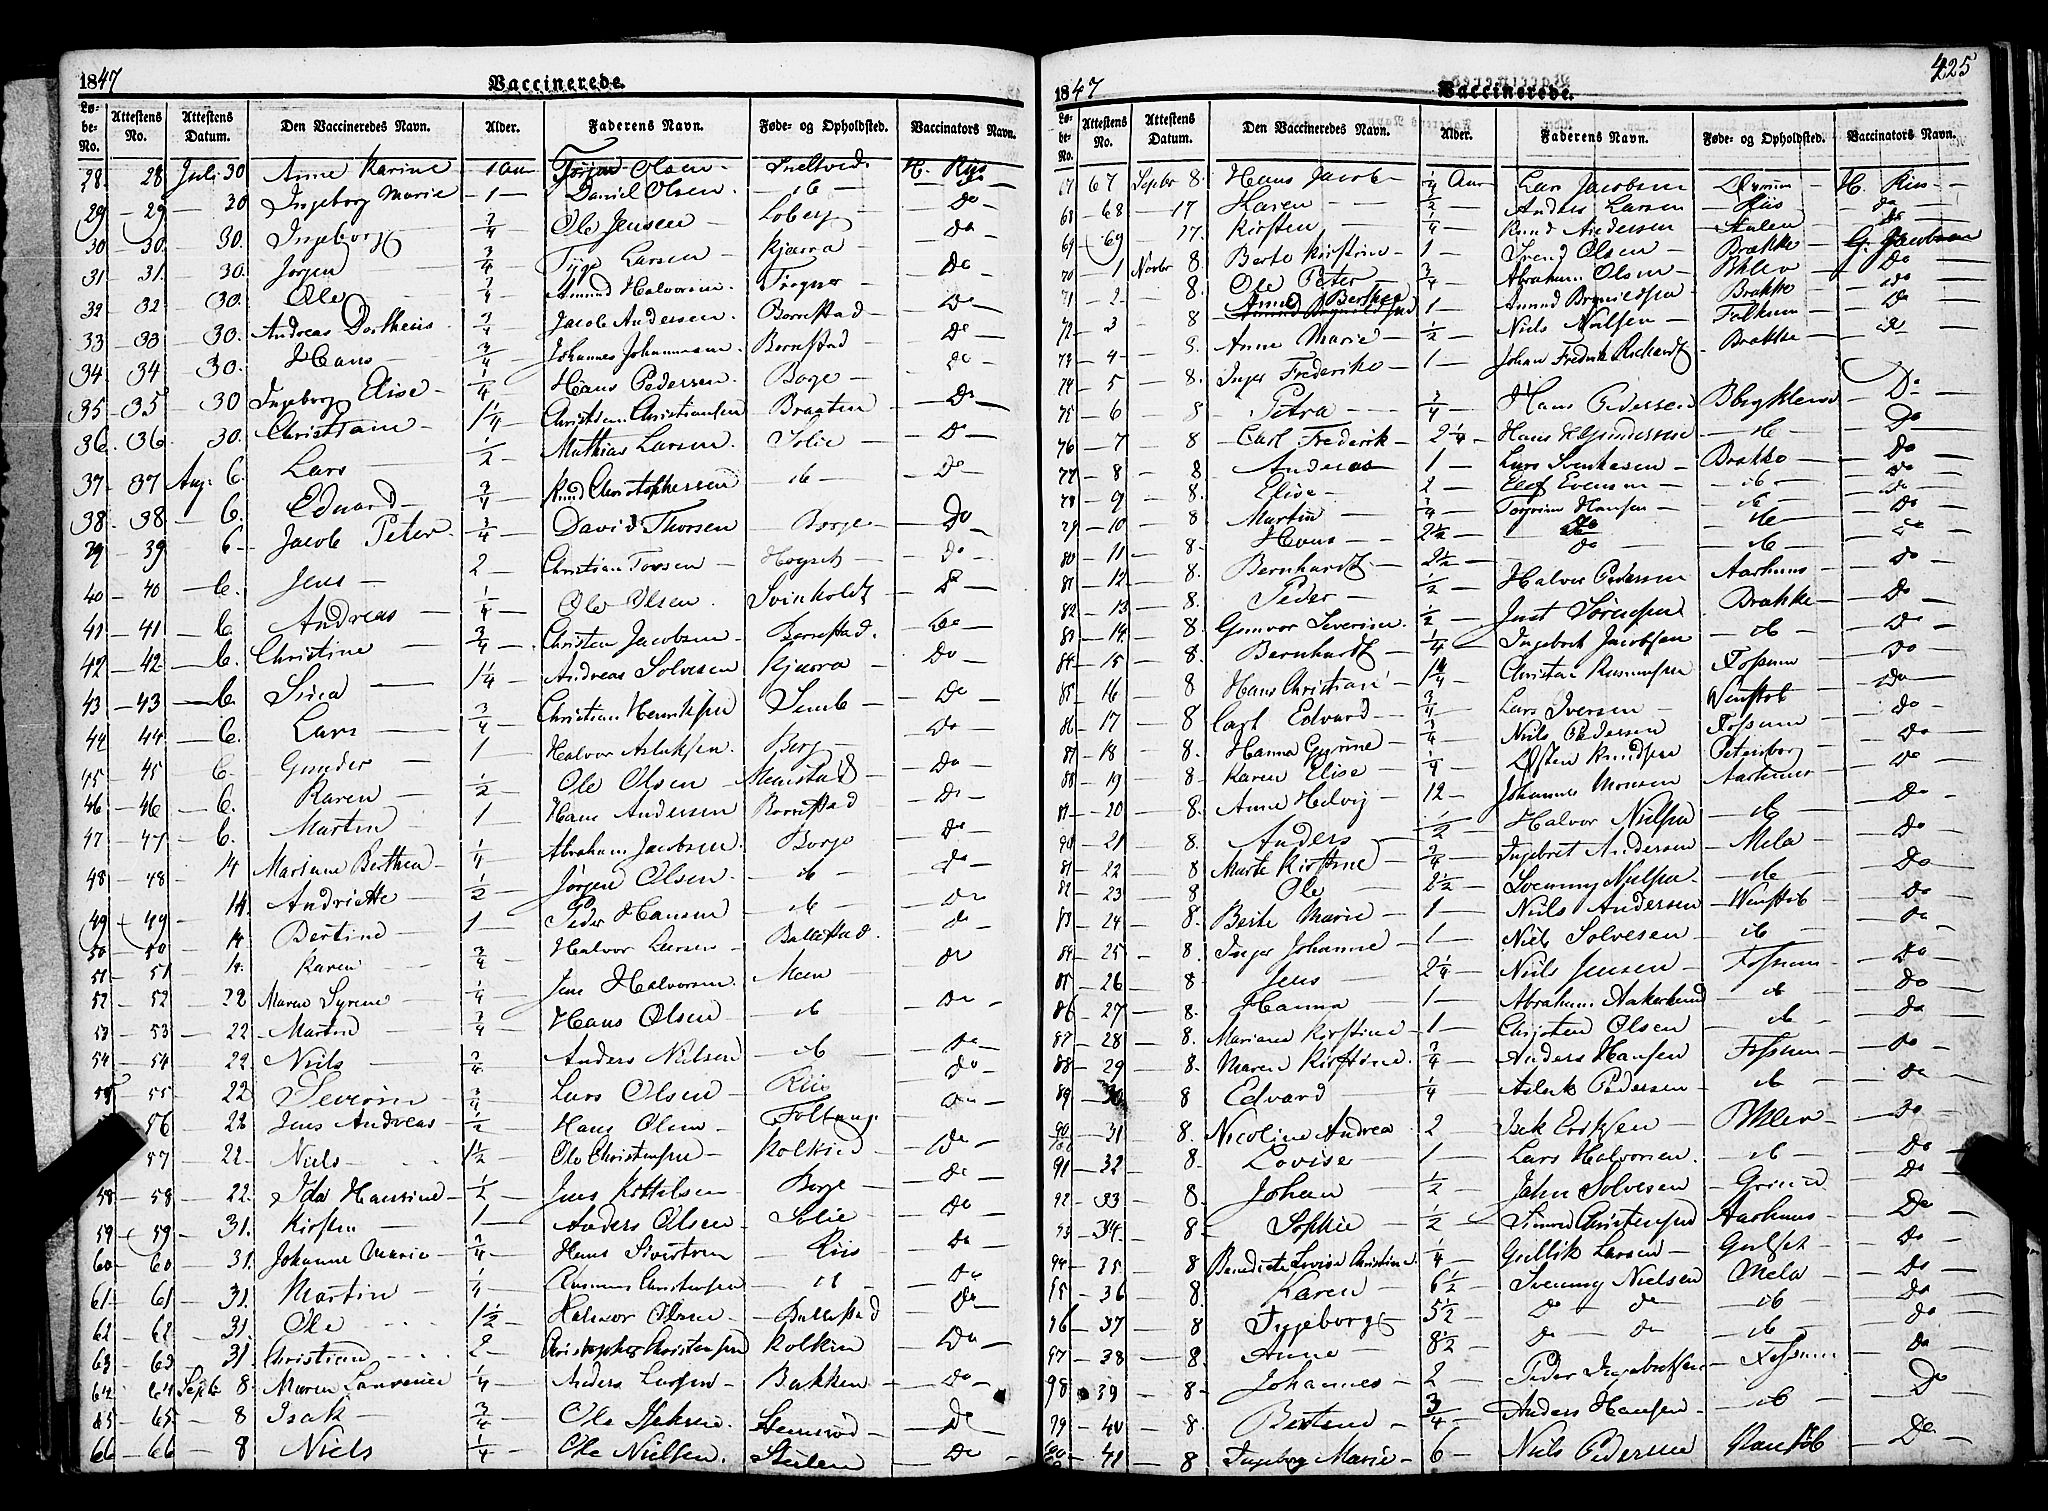 1847
Vaccinerede.
Løbe-No. Attestens No. Attestens Datum. Den Vaccineredes Navn. Alder. Faderens Navn. Føde- og Opholdsted. Vaccinators Navn.
28. 28 Juli 30 Anne Karine 1 Aar Olsen H. Riis
29 29 30 Ingeborg Marie 1 Daniel Olsen ib Do
30 30. 30. Ingeborg 3/4 Ole Jensen Loberg Do
31 31. 30. Jørgen 3/4 Larsen Kjærra Do
32 32 30. Ole Amund Halvorsen Do
33 33 30. Andreas Dortheus 3/4 Jacob Andersen Borrestad Do
34 34 30. Hans 3/4 Johannes Johannesen Borrestad Do
35 35 30 Ingeborg Elise 1/4 Hans Pedersen Borge Do
36 36 30. Christiane 1 1/4 Christen Christiansen Braaten Do
37 37 Aug. 6. Lars 1/2 Mathias Larsen Solie Do
38 38 6. Eduard 3/4 Knud Christophersen ib Do
39 39 6 Jacob Peter 3/4 David Thorsen Borge Do
40 40 6. Jens 2 Christian Torsen Do
41 41 6. Andreas 1/4 Ole Olsen Svinholdt Do
42 42 6. Christine 3/4 Christen Jacobsen Borrestad Do
43 43 6 1 1/4 Andreas Solvesen Kjærra Do
44 44 6. Lars 3/4 Christian Henriksen Semb Do
45 45 6. Gunder 1 Halvor Aslaksen Berg Do
46 46 6. Karen 1/2 Ole Olsen Do
47 47 6. Martin 1 Hans Andersen Borrestad Do
48 48 14 Mariane Berthea 1/4 Abraham Jacobsen Borge Do
49 49 14. Andriette 1/2 Jørgen Olsen ib Do
50 50 14 Bertine 1 Peder Hansen ib Do
51 51 14. Karen 3/4 Halvor Larsen Ballestad Do
52 52 22 Maren Syrene 1/4 Jens Halvorsen Meen Do
53 53 22 Martin 3/4 Hans Olsen ib Do
54 54 22 Niels 3/4 Anders Nilsen ib Do
55 55 22 Severin 3/4 Lars Olsen Riis Do
56 22 Jens Andreas 1/2 Hans Olsen Do
57 22 Niels 1 1/2 Ole Christensen Do
58 58 22. Ida Hansine 1/2 Jens Kittelsen Borge Do
59 59 31. Kirsten 1 Anders Olsen Solie Do
60 60 31. Johanne Marie 3/4 Hans Sivertsen Riis Do
61 61 31. Martin 1/4 Rasmus Christensen ib Do
62 62 31. Ole 1 1/2 Halvor Olsen Ballestad Do
63 63 31. Christian 2 Christopher Christensen Do
64 64 Septb 8 Maren Laurence 1/4 Anders Larsen Bakken Do
65 65 8 Isak 3/4 Ole Do
66 66 8 Niels 1/4 Ole Nielsen Stulen Do
425
1847
Vaccinerede.
Løbe-No. Attestens No. Attestens Datum. Den Vaccineredes Navn. Alder. Faderens Navn. Føde- og Opholdsted. Vaccinators Navn.
67 67 Septbr 8. Hans Jacob 1/4 Aar Lars Jacobsen H. Riis
68 68 17 Maren 1/2 Anders Larsen Riis do
69 69 17. Kirsten 1/4 Knud Andersen Stulen do
70 1 Novbr 8. Berte Kirstine 1 Trond Olsen Brække G. Jacobsen
71 2 8. Ole Peter 3/4 Abraham Olsen Do
72 3 8 Anne Berthea 1 Brække do
73 4 8. Anne Marie 1/2 Niels Nielsen Do
74 5 8. Inger Frederike 1 Johan Fredrik Brække do
75 6 8 Petra 3/4 Hans Pedersen Do
76 7 8 Carl Frederik 2 1/4 Hans Gundersen ib Do
77 8 8 Andreas 1 Lars Svenkesen Brække Do
78 9 8. Elise 2 Elef Evensen ib do
79 10 8 Martin 3/4 Torgrim Hansen ib Do
80 11 8. Hans 2 1/2 do ib Do
81 12 8. Bernhardt 2 1/2 do ib do
82 13 8. Peder 1/2 Halvor Pedersen Aarhuus Do
83 14. 8. Gunvor Severine 1/2 Just Sørensen Brække Do
84 15 8. Bernhardt 1/4 Ingebret Jacobsen ib Do
85 16 8 Hans Christian 1 1/4 Christian Rasmussen Fossum Do
86 17 8 Carl Edvard 3/4 Lars Iversen Venstøb Do
87 18 8. Hanna Gurine 3/4 Niels Pedersen Fossum Do
88 19 8 Karen Elise 1/4 Østen Knudsen Petersborg Do
89 20 8. Anne Helvig 12 Johannes Monsen Aarhuus Do
90 21 8. Anders 1/2 Halvor Nielsen ib Do
81 22 8. Marte Kirstine 3/4 Ingebret Andersen Mela Do
82 23 8 Ole 2 1/2 Svenning Nielsen ib Do
83 24 8. Berte Marie 1 Niels Andersen Venstøb Do
84 25 8. Inger Johanne 1 Niels Solvesen ib Do
85 26 8 Jens 2 1/4 Niels Jensen Fossum Do
86 27 8. Hanna 1 Abraham Aakerlund ib Do
87 28 8. Mariane Kirstine 1 Christen Olsen ib Do
88 29 8. Maren Kirstine 3/4 Anders Hansen Fossum Do
89 30 8 Edvard 1/4 Aslak Pedersen ib Do
90 31 8. Nicoline Andrea 2 Isak Eriksen Do
91 32 8. Lovise 1 Lars Halvorsen ib Do
92 33 8. Johan 1/2 John Solvesen Do
93 34. 8. Sophie 1/2 Simon Christensen Aarhuus Do
94 35 8 Benedicte Lovise Christine 1/4 Gullik Larsen Gulset Do
95 36 8. Karen 6 1/2 Svenning Nielsen Mela Do
96 37 8 Ingeborg 5 1/2 do do ib Do
97 38 8. Anne 8 1/2 do do ib Do
98 39 8 Johannes 2 Peder Ingebretsen Fossum Do
99 40 8. Bertine 3/4 Anders Hansen ib Do
41 8 Ingeborg Marie 6 Niels Pedersen Do